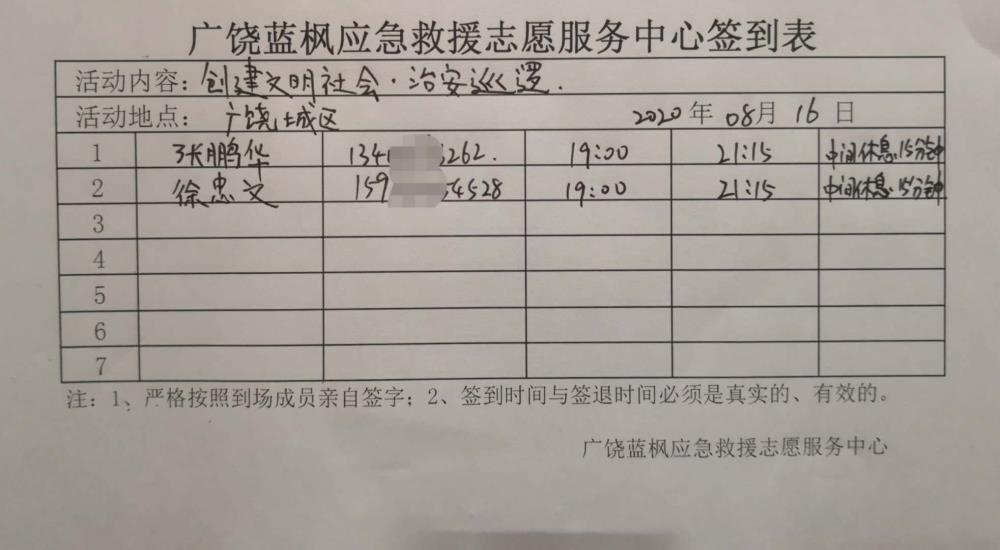 广饶蓝枫应急救援志愿服务中心签到表
活动内容：创建文明社会·治安巡逻.
活动地点：广饶城区 2020年08月16日
1 张鹏华 134 262. 19:00 21:15 中间休息15分钟
2 徐忠文 159 54528 19:00 21:15 中间休息15分钟
3
4
5
6
7
注：1、严格按照到场成员亲自签字；2、签到时间与签退时间必须是真实的、有效的。
广饶蓝枫应急救援志愿服务中心